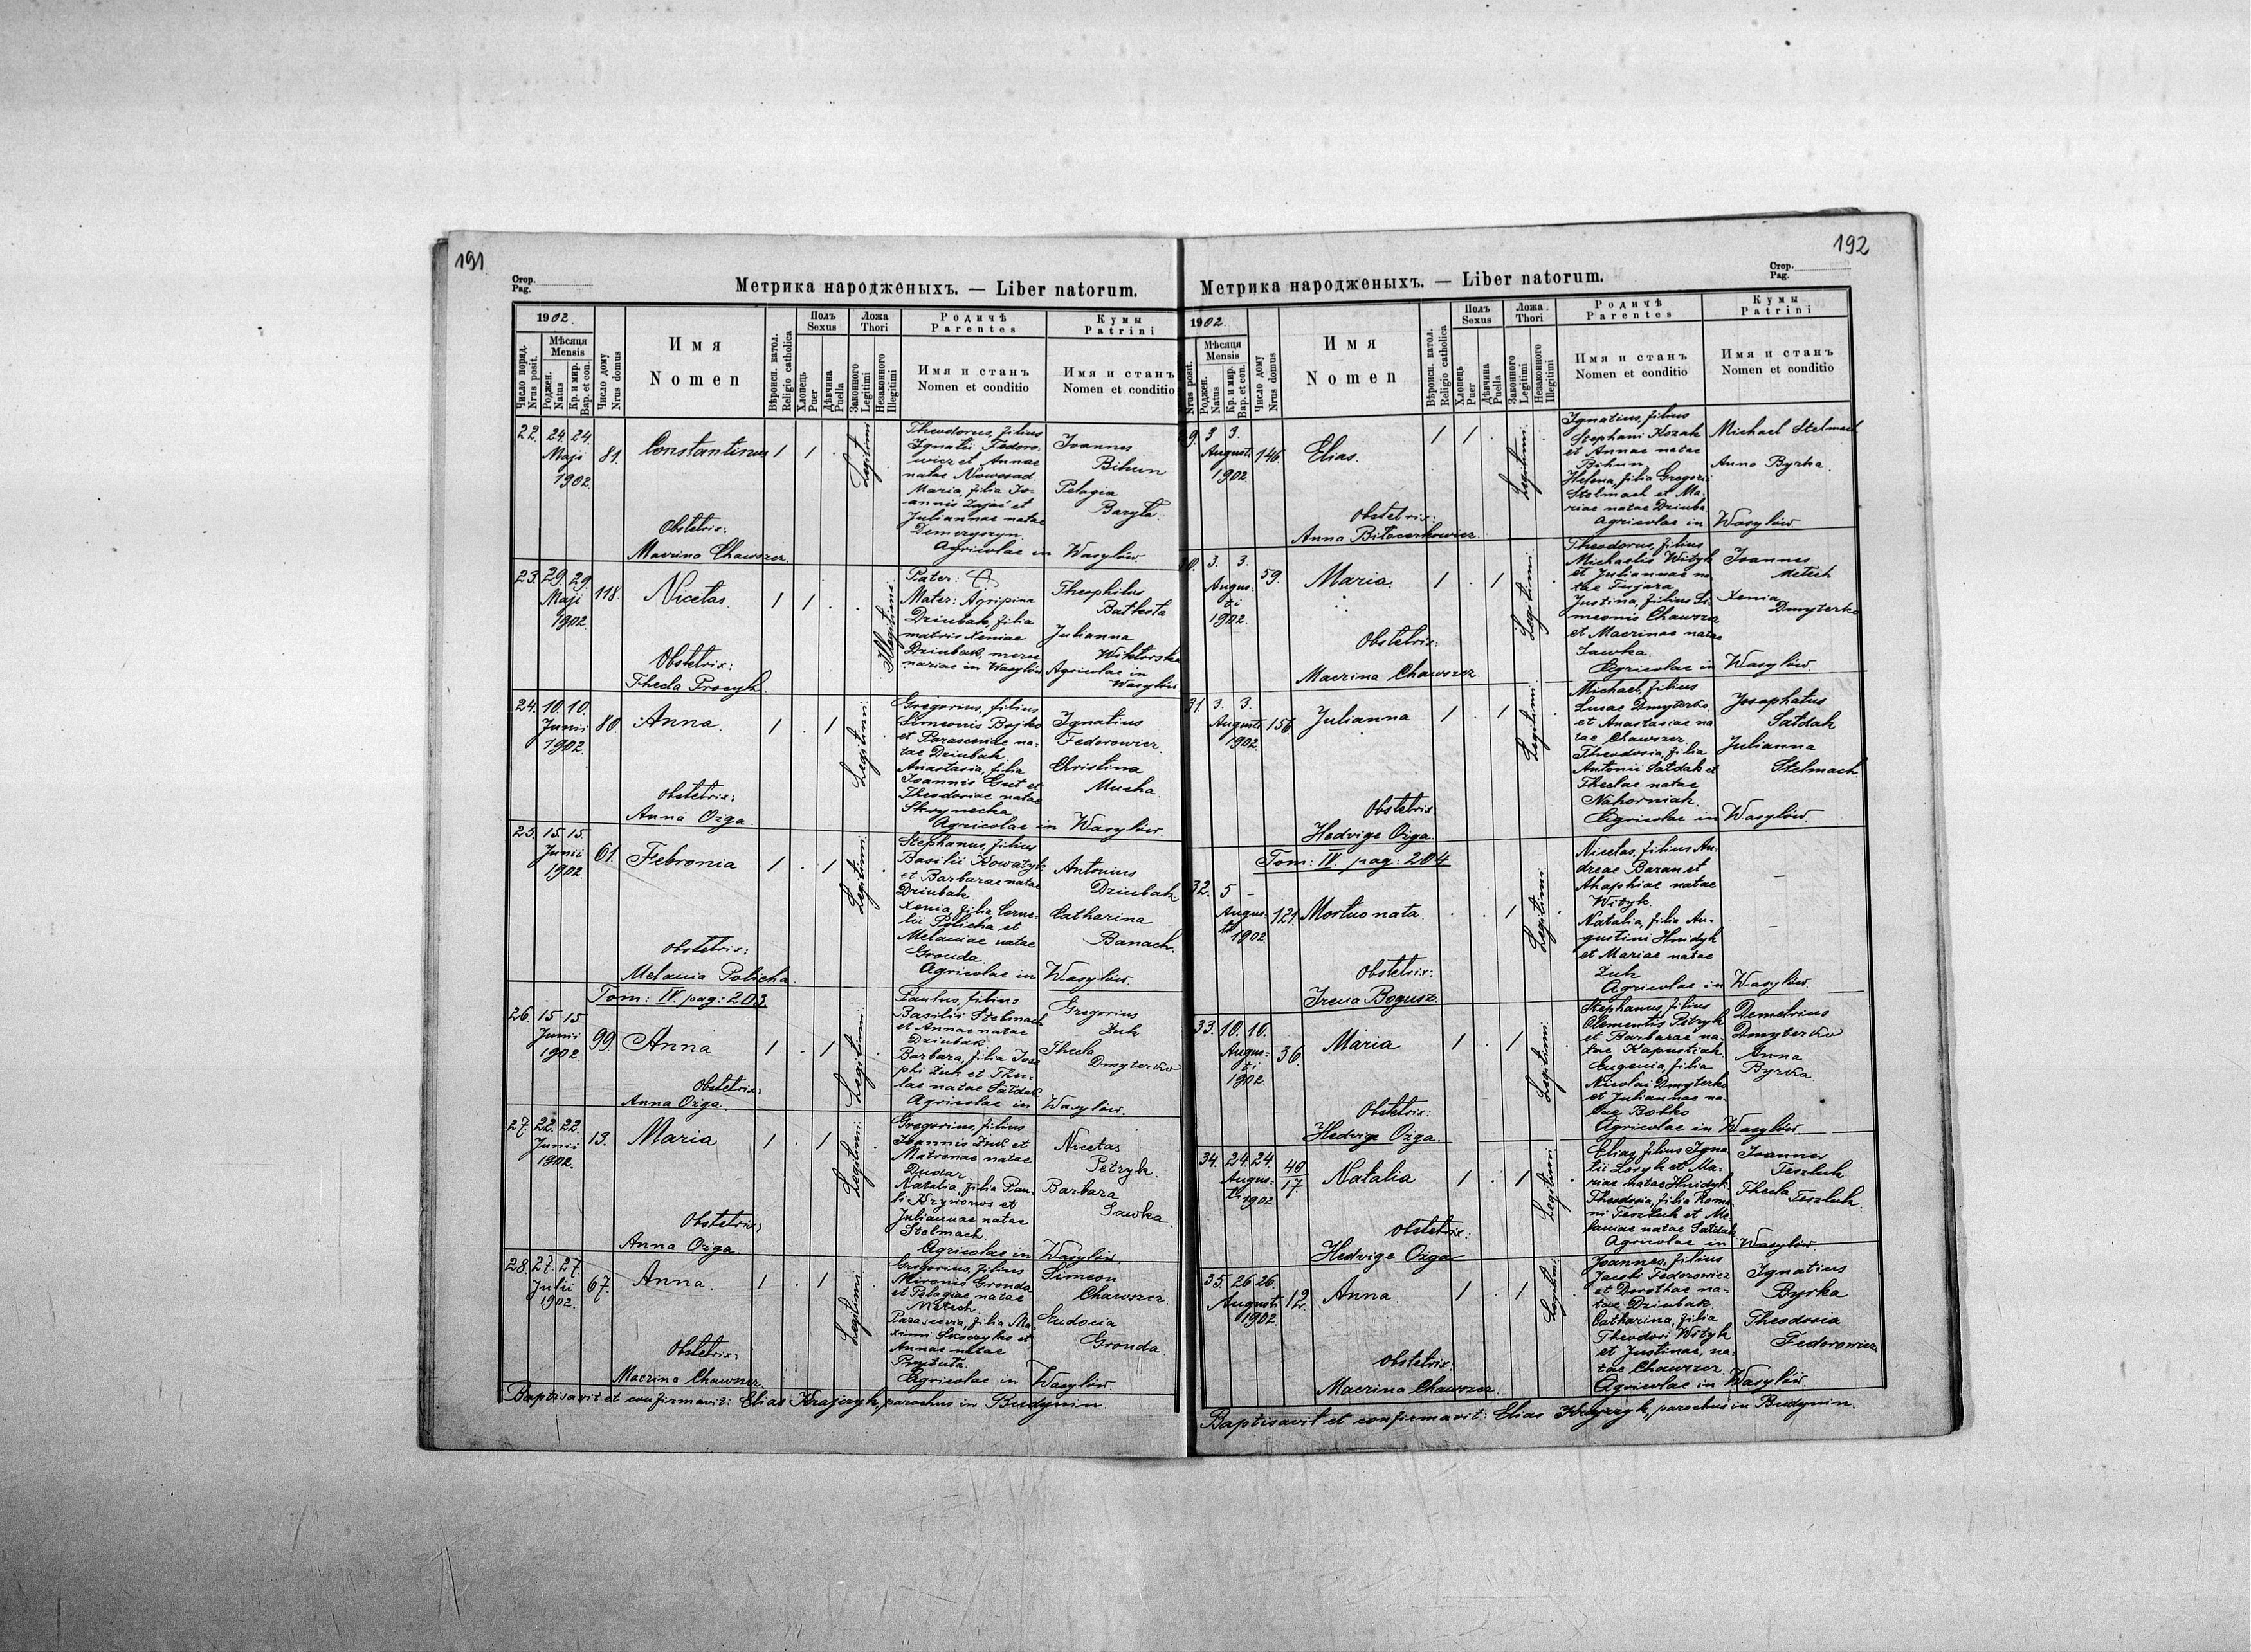 191
Стор.
Pag.
Метрика народженыхъ. — Liber natorum.
1902.
Число поряд.
Nrus posit.
Мѣсяця
Mensis
Роджен.
Natus
Кр. и мир.
Bap. et con.
Число дому
Nrus domus
Имя
Nomen
Вѣроисп. катол.
Religio catholica
Полъ
Sexus
Хлопець
Puer
Дѣвчина
Puella
Ложа
Thori
Законного
Legitimi
Незаконного
Illegitimi
Родичѣ
Parentes
Имя и станъ
Nomen et conditio
Кумы
Patrini
Имя и станъ
Nomen et conditio
22. 24. 24.
Maji
1902.
81.
Constantinus
1 1 .
Legitimi
Theodorus, filius
Ignatii Fedoro-
wicz et Annae
natae Nowosad.
Maria, filia Jo-
annis Zając et
Juliannae natae
Demczyszyn.
Agricolae in Wasylów.
Joannes
Bihun
Pelagia
Baryła.
Obstetrix:
Macrina Chawszcz.
23. 29. 29.
Maji
1902.
118.
Nicetas.
1 1 . .
Illegitimi.
Pater:
Mater: Agripina
Dziubak, filia
matris Xeniae
Dziubak, merce-
nariae in Wasylów
Theophilus
Bałkota
Julianna
Wiktorska
Agricolae in
Wasylów
Obstetrix:
Thecla Procyk
24. 10. 10.
Junii
1902.
80.
Anna.
1 . 1
Legitimi.
Gregorius, filius
Simeonis Bojko
et Parasceviae na-
tae Dziubak
Anastasia, filia
Joannis Gut et
Theodosiae natae
Skrynecka
Agricolae in Wasylów.
Ignatius
Fedorowicz.
Christina
Mucha.
Obstetrix:
Anna Ożga.
25. 15. 15.
Junii
1902.
61.
Febronia
1 . 1
Legitimi.
Stephanus, filius
Basilii Kowałyk
et Barbarae natae
Dziubak
Xenia, filia Corne-
lii Policha et
Melaniae natae
Gronda.
Agricolae in Wasylów.
Antonius
Dziubak
Catharina
Banach.
Obstetrix:
Melania Policha.
Tom: IV. pag: 203.
26. 15. 15.
Junii
1902.
99.
Anna
1 . 1
Legitimi.
Paulus, filius
Basilii Stelmach
et Annae natae
Dziubak
Barbara, filia Jose-
phi Żuk et The-
lae natae Sałdak.
Agricolae in Wasylów.
Gregorius
Żuk
Thecla
Dmyterko
Obstetrix:
Anna Ożga.
27. 22. 22.
Junii
1902.
13.
Maria
1 . 1
Legitimi.
Gregorius, filius
Joannis Żuk et
Matronae natae
Dudar
Natalia, filia Pau-
li Krywonos et
Juliannae natae
Stelmach.
Agricolae in Wasylów.
Nicetas
Petryk.
Barbara
Sawka.
Obstetrix:
Anna Ożga.
28. 27. 27.
Julii
1902.
67.
Anna.
1 . 1
Legitimi.
Gregorius, filius
Mironis Gronda
et Pelagiae natae
Metech.
Parascevia, filia Ma-
ximi Skoczylas et
Annae natae
Prytuła.
Agricolae in Wasylów.
Simeon
Chawszcz.
Eudocia
Gronda.
Obstetrix:
Macrina Chawszcz.
Baptisavit et confirmavit: Elias Krajczyk, parochus in Budynin.
192
Стор.
Pag.
Метрика народженыхъ. — Liber natorum.
1902.
Nrus posit.
Мѣсяця
Mensis
Роджен.
Natus
Кр. и мир.
Bap. et con.
Число дому
Nrus domus
Имя
Nomen
Вѣроисп. катол.
Religio catholica
Полъ
Sexus
Хлопець
Puer
Дѣвчина
Puella
Ложа
Thori
Законного
Legitimi
Незаконного
Illegitimi
Родичѣ
Parentes
Имя и станъ
Nomen et conditio
Кумы
Patrini
Имя и станъ
Nomen et conditio
29. 3. 3.
Augusti
1902.
146.
Elias.
1 1 .
Legitimi.
Ignatius, filius
Stephani Kozak
et Annae natae
Bihun
Helena, filia Gregorii
Stelmach et Ma-
riae natae Dziuba
Agricolae in Wasylów.
Michael Stelmach
Anna Byrka.
Obstetrix:
Anna Biłocerkowicz
30. 3. 3.
Augus-
ti
1902.
59.
Maria.
1 . 1
Legitimi.
Theodorus, filius
Michaelis Wityk
et Juliannae na-
tae Fujara
Justina, filius Si-
meonis Chawszcz
et Macrinae natae
Sawka.
Agricolae in Wasylów.
Joannes
Metech
Xenia
Dmyterko
Obstetrix:
Macrina Chawszcz.
31. 3. 3.
Augusti
1902.
156.
Julianna
1 . 1
Legitimi.
Michael, filius
Lucae Dmyterko,
et Anastasiae na-
tae Chawszcz
Theodosia, filia
Antonii Sałdak et
Theclae natae
Nahorniak.
Agricolae in Wasylów.
Josaphatus
Sałdak
Julianna
Stelmach.
Obstetrix
Hedvige Ożga.
Tom: IV. pag: 204
32. 5 –
Augus-
ti
1902.
121.
Mortuo nata.
. . 1
Legitimi.
Nicetas, filius An-
dreae Baran et
Ahaphiae natae
Wityk.
Natalia, filia Au-
gustini Hnidyk
et Mariae natae
Żuk
Agricolae in Wasylów.
–
–
Obstetrix:
Irena Bogusz.
33. 10. 10.
Augus-
ti
1902.
36.
Maria
1 . 1
Legitimi.
Stephanus, filius
Clementis Petryk
et Barbarae na-
tae Kapustiak.
Eugenia, filia
Nicolai Dmyterko
et Juliannae na-
tae Bobko
Agricolae in Wasylów
Demetrius
Dmyterko
Anna
Byrka.
Obstetrix:
Hedvige Ożga.
34. 24. 24.
Augus-
ti 1902
49
17.
Natalia
1 . 1
Legitimi.
Elias, filius Igna-
tii Loryk et Ma-
riae natae Hnidyk.
Theodosia, filia Roma-
ni Teszluk et Me-
laniae natae Sałdak
Agricolae in Wasylów
Joannes
Teszluk
Thecla
Teszluk.
Obstetrix:
Hedvige Ożga
35. 26. 26.
Augusti
1902.
12.
Anna.
1 . 1
Legitimi.
Joannes, filius
Jacobi Fedorowicz
et Dorothae na-
tae Dziubak.
Catharina, filia
Theodori Wityk
et Justinae, na-
tae Chawszcz.
Agricolae in Wasylów.
Ignatius
Byrka
Theodosia
Fedorowicz.
Obstetrix:
Macrina Chawszcz.
Baptisavit et confirmavit: Elias Krajczyk, parochus in Budynin.